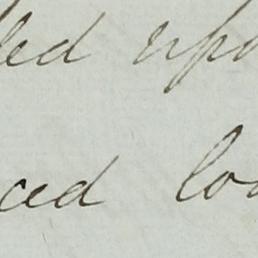 led upo
ced loo